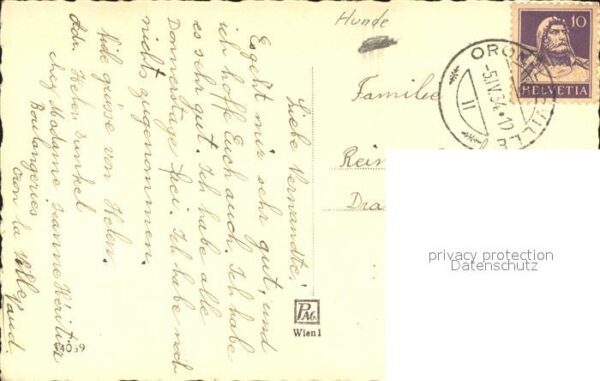 Hunde
10
HELVETIA
ORON
VILLE
-5.IV.34-17
II
Familie
Rein
Dra
privacy protection
Datenschutz
PAG
Wien 1
Liebe Verwandte,
Es geht mir sehr gut, und
ich hoffe Euch auch. Ich habe
es sehr gut. Ich habe alle
Donnerstage frei. Ich habe noch
nichts zugenommen.
Viele grüsse von Helen.
Adr. Helen
chez Madame Jeanne
Boulangeries
Oron la Ville
Vaud.